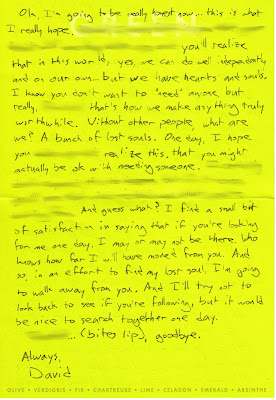 Ok, I'm going to be really honest now... this is what
I really hope.
you'll realize
that in this world, yes, we can do well independently
and on our own but we have hearts and souls.
I know you don't want to "need" anyone but
really, that's how we make anything truly
worthwhile. Without other people, what are
we? A bunch of lost souls. One day, I hope
you realize this, that you might
actually be ok with needing someone.
And guess what? I find a small bit
of satisfaction in saying that if you're looking
for me one day, I may or may not be there. Who
knows how far I will have moved from you. And
so, in an effort to find my lost soul, I'm going
to walk away from you. And I'll try not to
look back to see if you're following, but it would
be nice to search together one day.
... (bites lip), goodbye.
Always,
David
OLIVE • VERDIGRIS • FIR • CHARTREUSE • LIME • CELADON • EMERALD • ABSINTHE